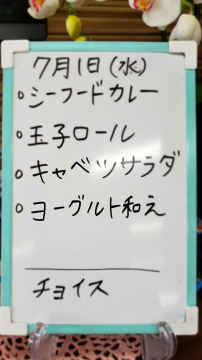 7月1日(水)
○シーフードカレー
○玉子ロール
○キャベツサラダ
○ヨーグルト和え
チョイス